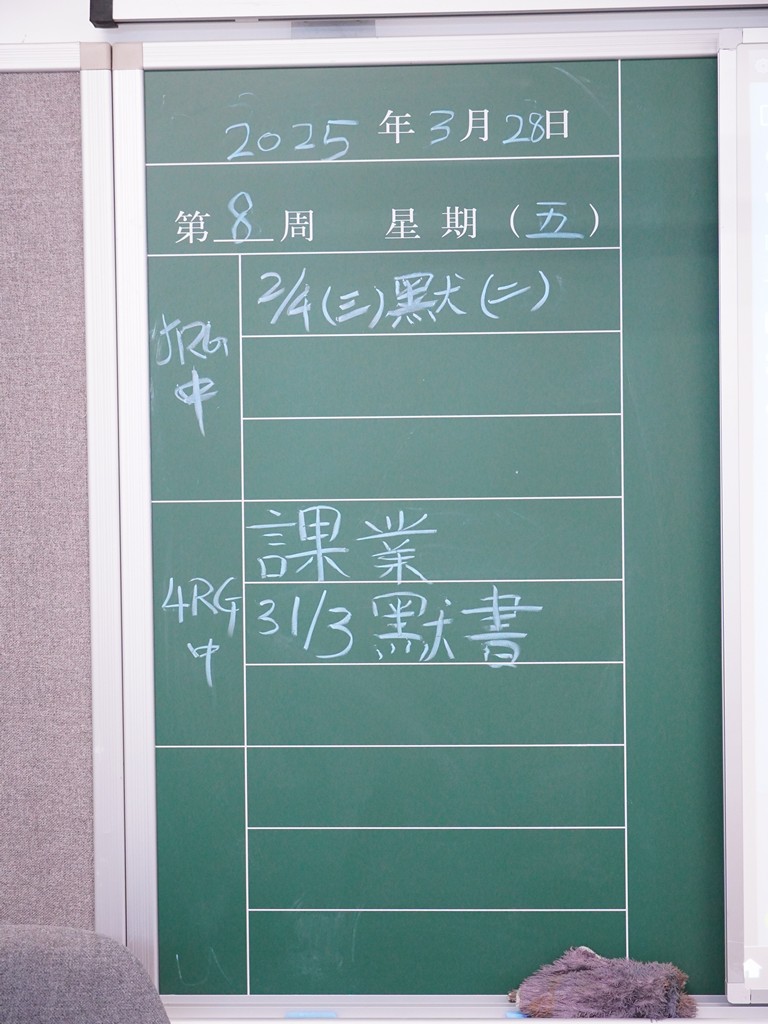 2025年3月28日
第8周 星期(五)
2/4(三)默(二)
中
課業
4RG
31/3 默書
中